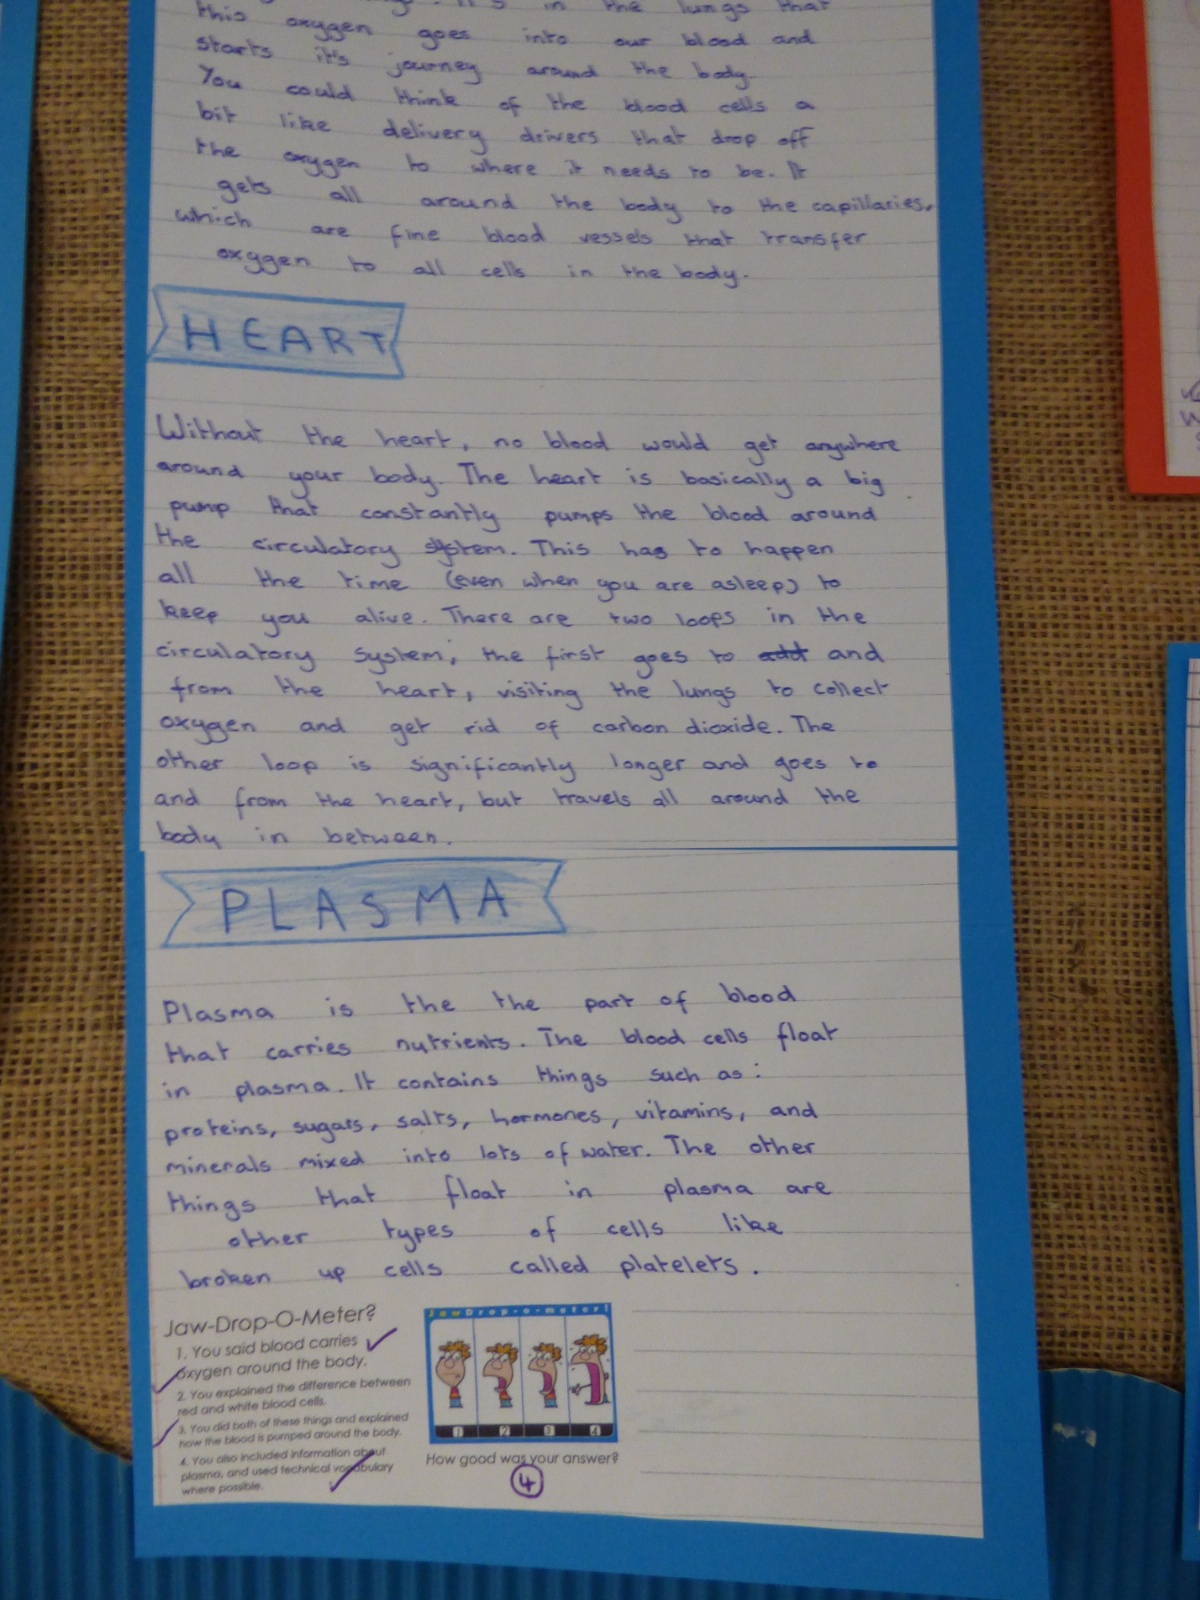 It's in the lungs that
this oxygen goes into our blood and
starts it's journey around the body.
You could think of the blood cells a
bit like delivery drivers that drop off
the oxygen to where it needs to be. It
gets all around the body to the capillaries,
which are fine blood vessels that transfer
oxygen to all cells in the body.
HEART
Without the heart, no blood would get anywhere
around your body. The heart is basically a big
pump that constantly pumps the blood around
the circulatory system. This has to happen
all the time (even when you are asleep) to
keep you alive. There are two loops in the
circulatory system, the first goes to and
from the heart, visiting the lungs to collect
oxygen and get rid of carbon dioxide. The
other loop is significantly longer and goes to
and from the heart, but travels all around the
body in between.
PLASMA
Plasma is the the part of blood
that carries nutrients. The blood cells float
in plasma. It contains things such as:
proteins, sugars, salts, hormones, vitamins, and
minerals mixed into lots of water. The other
things that float in plasma are
other types of cells like
broken up cells called platelets.
Jaw-Drop-O-Meter?
1. You said blood carries
oxygen around the body.
2. You explained the difference between
red and white blood cells.
3. You did both of these things and explained
how the blood is pumped around the body.
4. You also included information about
plasma, and used technical vocabulary
where possible.
JawDrop-o-meter!
1 2 3 4
How good was your answer?
4